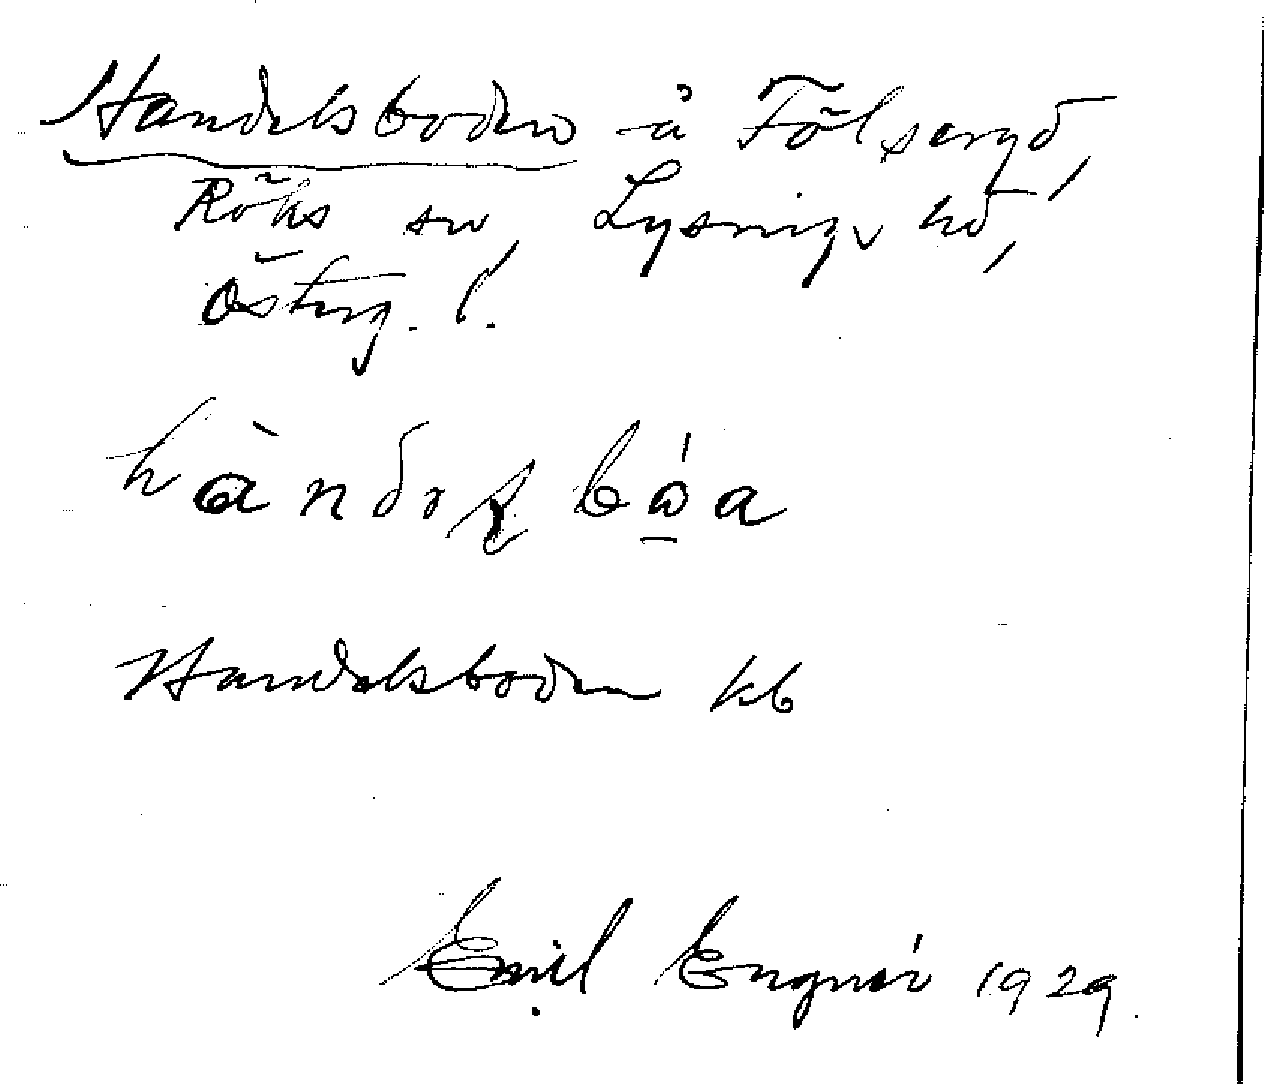 Handelsboden å Fölsergd,
Röks sn, Lysings hd,
Östg. l.
Handelsboden kb
Emil Engnér 1929.